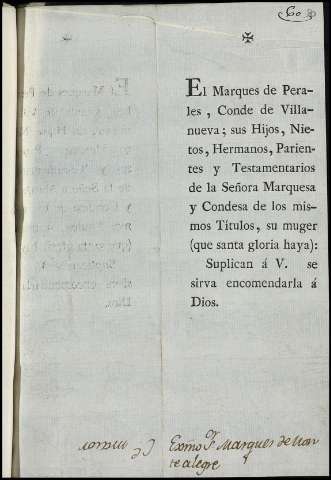 60
✠
El Marques de Pera-
les , Conde de Villa-
nueva; sus Hijos, Nie-
tos, Hermanos, Parien-
tes y Testamentarios
de la Señora Marquesa
y Condesa de los mis-
mos Títulos, su muger
(que santa gloria haya):
Suplican á V. se
sirva encomendarla á
Dios.
Exmo Sr Marques de Mon
te alegre